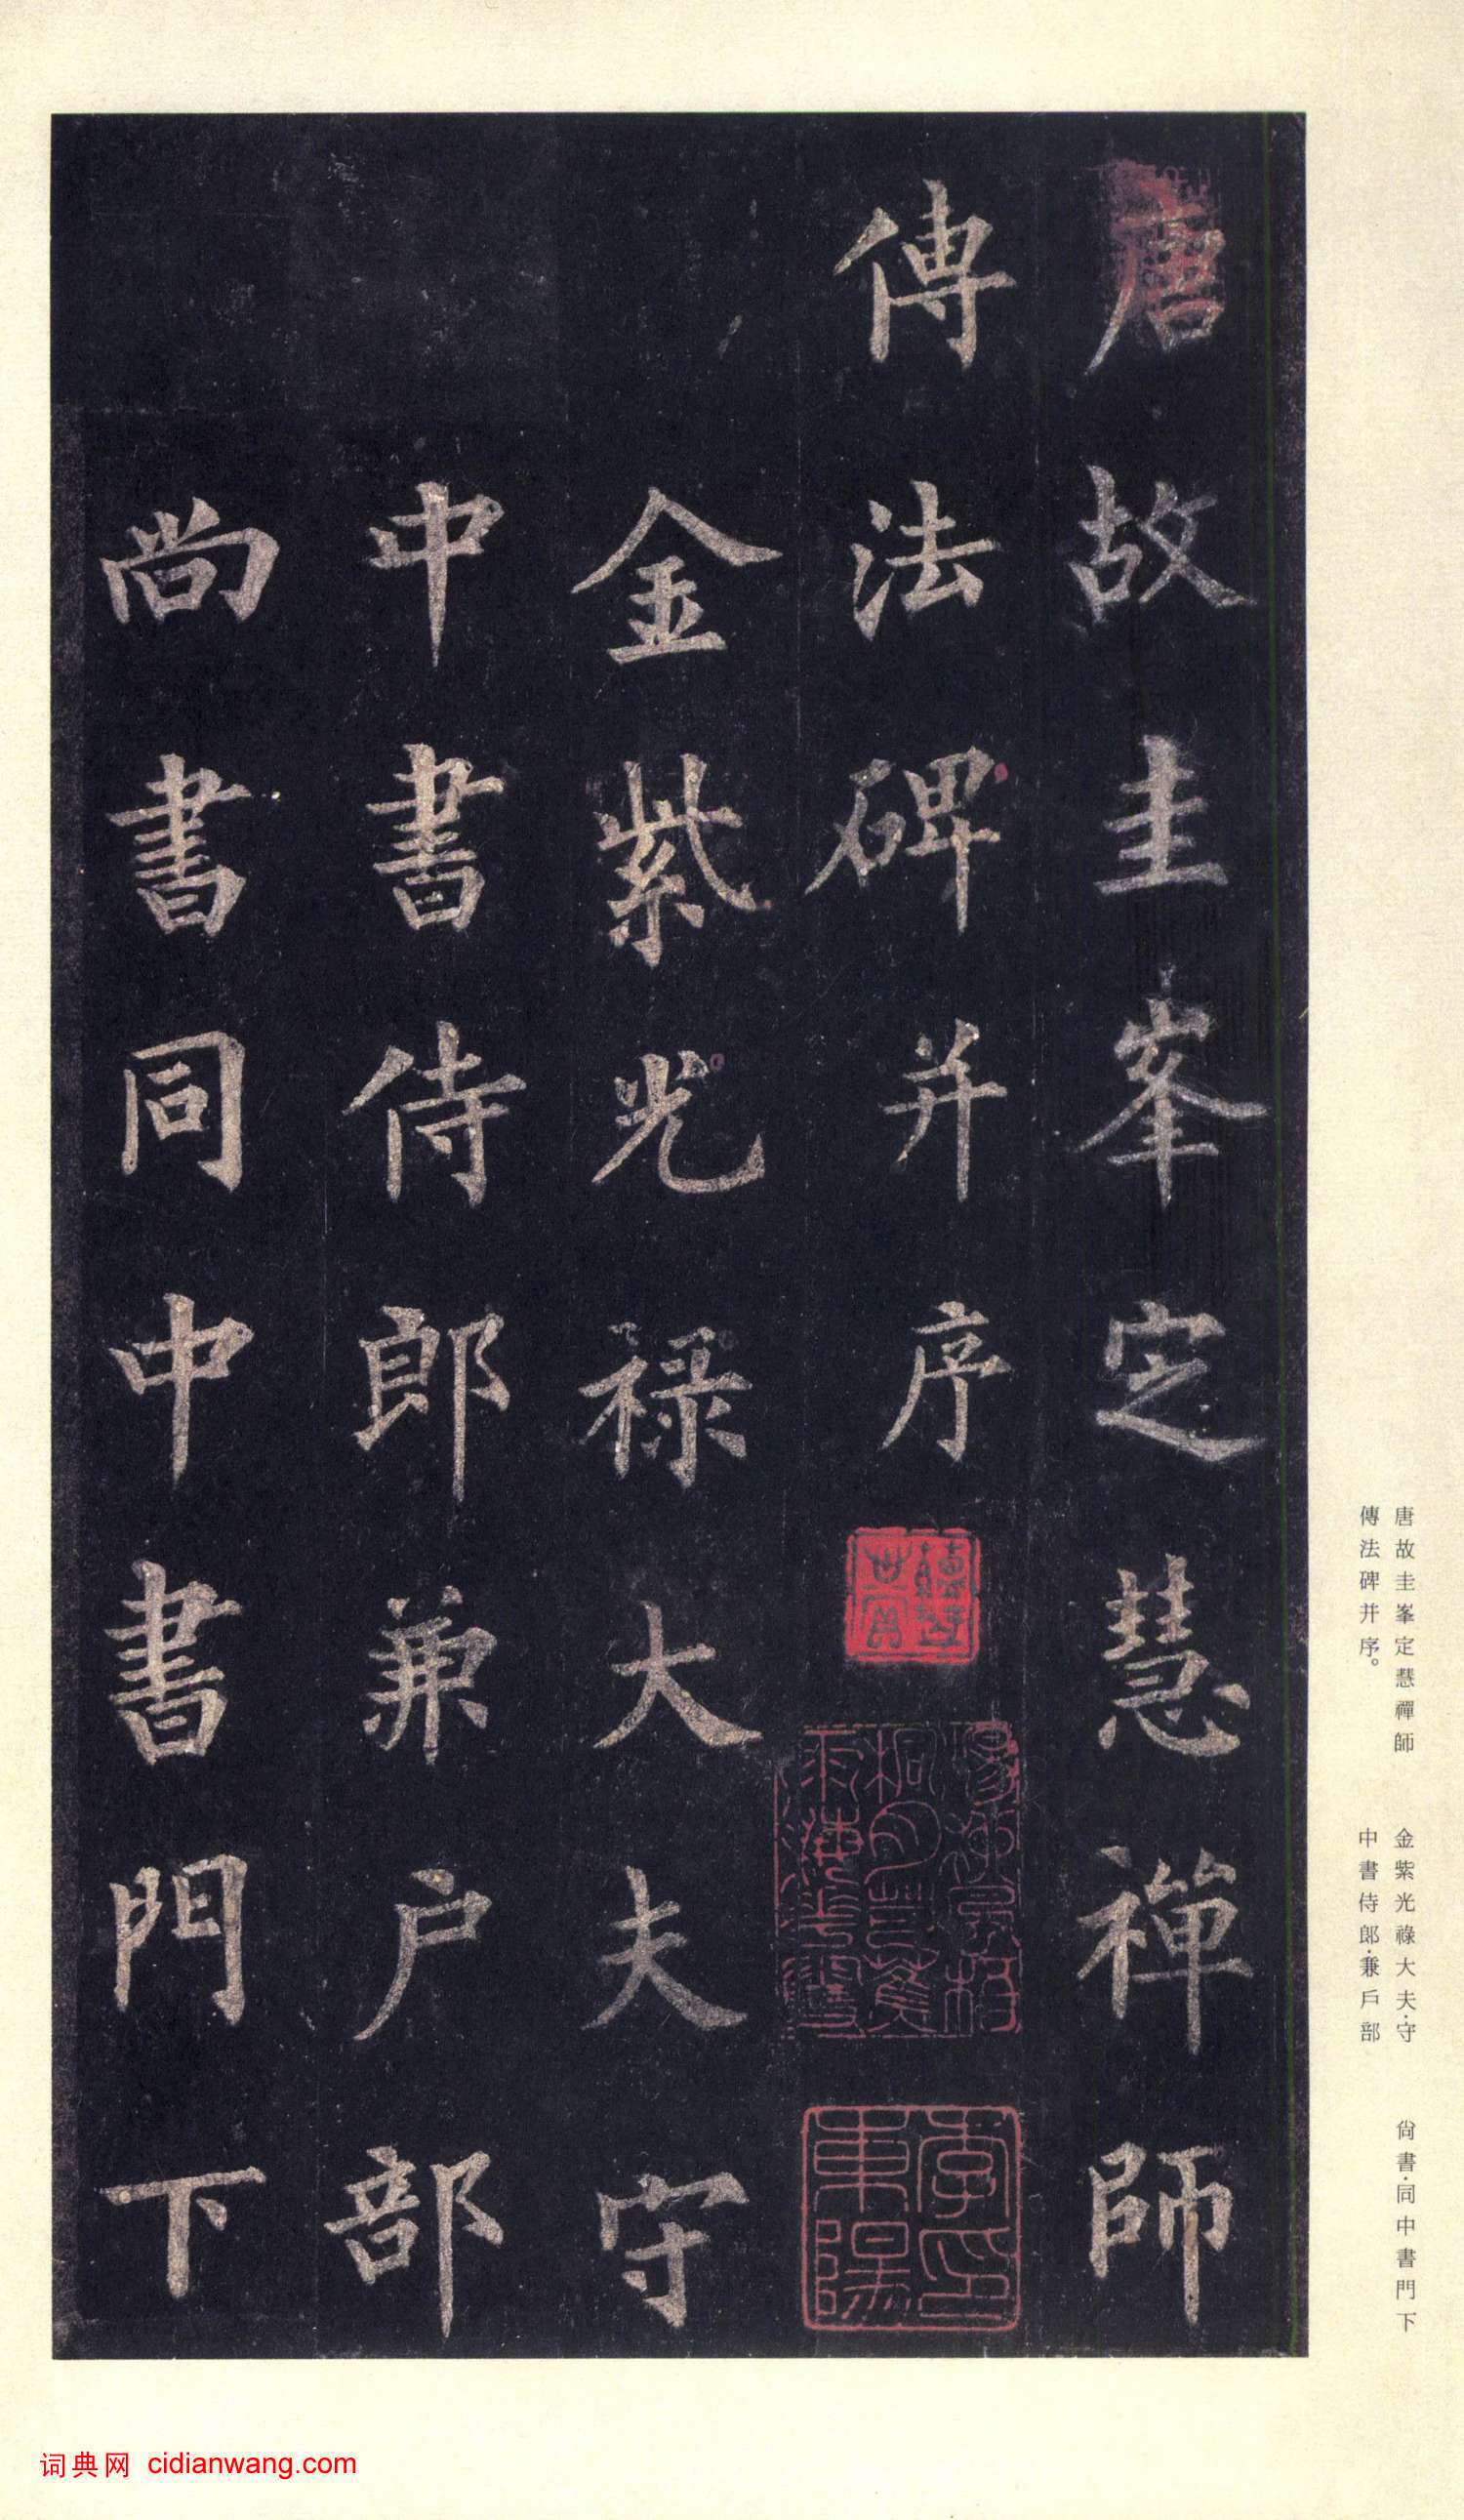 唐故圭峯定慧禪師
傳法碑并序
金紫光祿大夫守
中書侍郎兼户部
尚書同中書門下
唐故圭峯定慧禪師
傳法碑并序。
金紫光祿大夫·守
中書侍郎·兼戶部
尙書·同中書門下
词典网 cidianwang.com